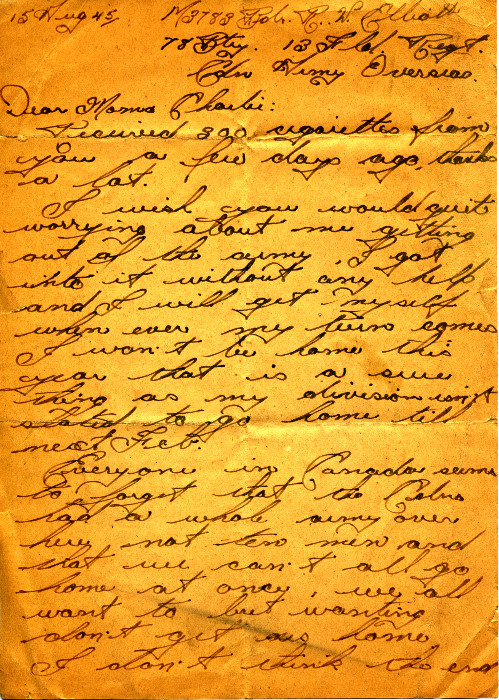 15 Aug 45 M3783 Gnr. R. W. Elliott
78 Bty. 13 Fld. Regt.
Cdn Army Overseas.
Dear Mom & Charlie:
I received 300 cigarettes from
you a few days ago, thanks
a lot.
I wish you would quit
worrying about me getting
out of the army, I got
into it without any help
and I will get myself
when ever my turn comes
I won't be home this
year that is a sure
thing as my division isn't
slated to go home till
next Feb.
Everyone in Canada seems
to forget that the Cdns
had a whole army over
here not ten men and
that we can't all go
home at once, we all
want to but wanting
don't get us home
I don't think the end